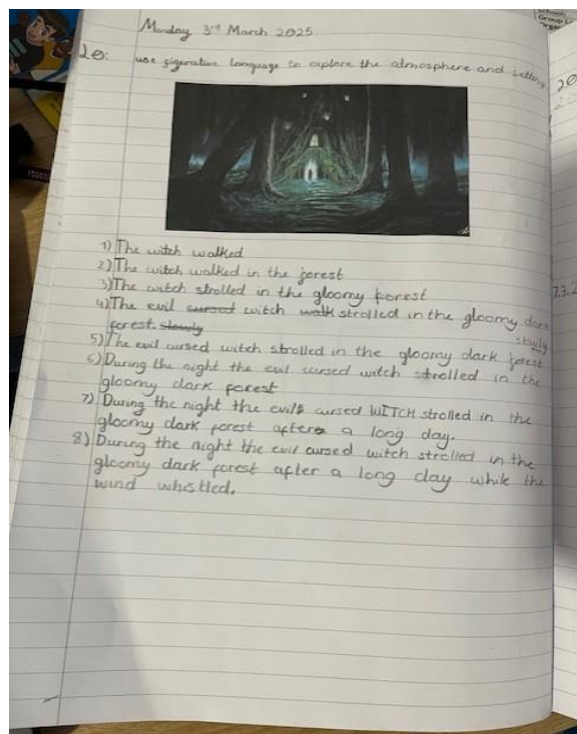 Monday 3rd March 2025
LO: use figurative language to explore the atmosphere and setting
1) The witch walked
2) The witch walked in the forest
3) The witch strolled in the gloomy forest
4) The evil cursed witch walk strolled in the gloomy dark
forest. slowly
slowly
5) The evil cursed witch strolled in the gloomy dark forest
6) During the night the evil cursed witch strolled in the
gloomy dark forest
7) During the night the evil cursed WITCH strolled in the
gloomy dark forest after a long day.
8) During the night the evil cursed witch strolled in the
gloomy dark forest after a long day while the
wind whistled.
20
7.3.2